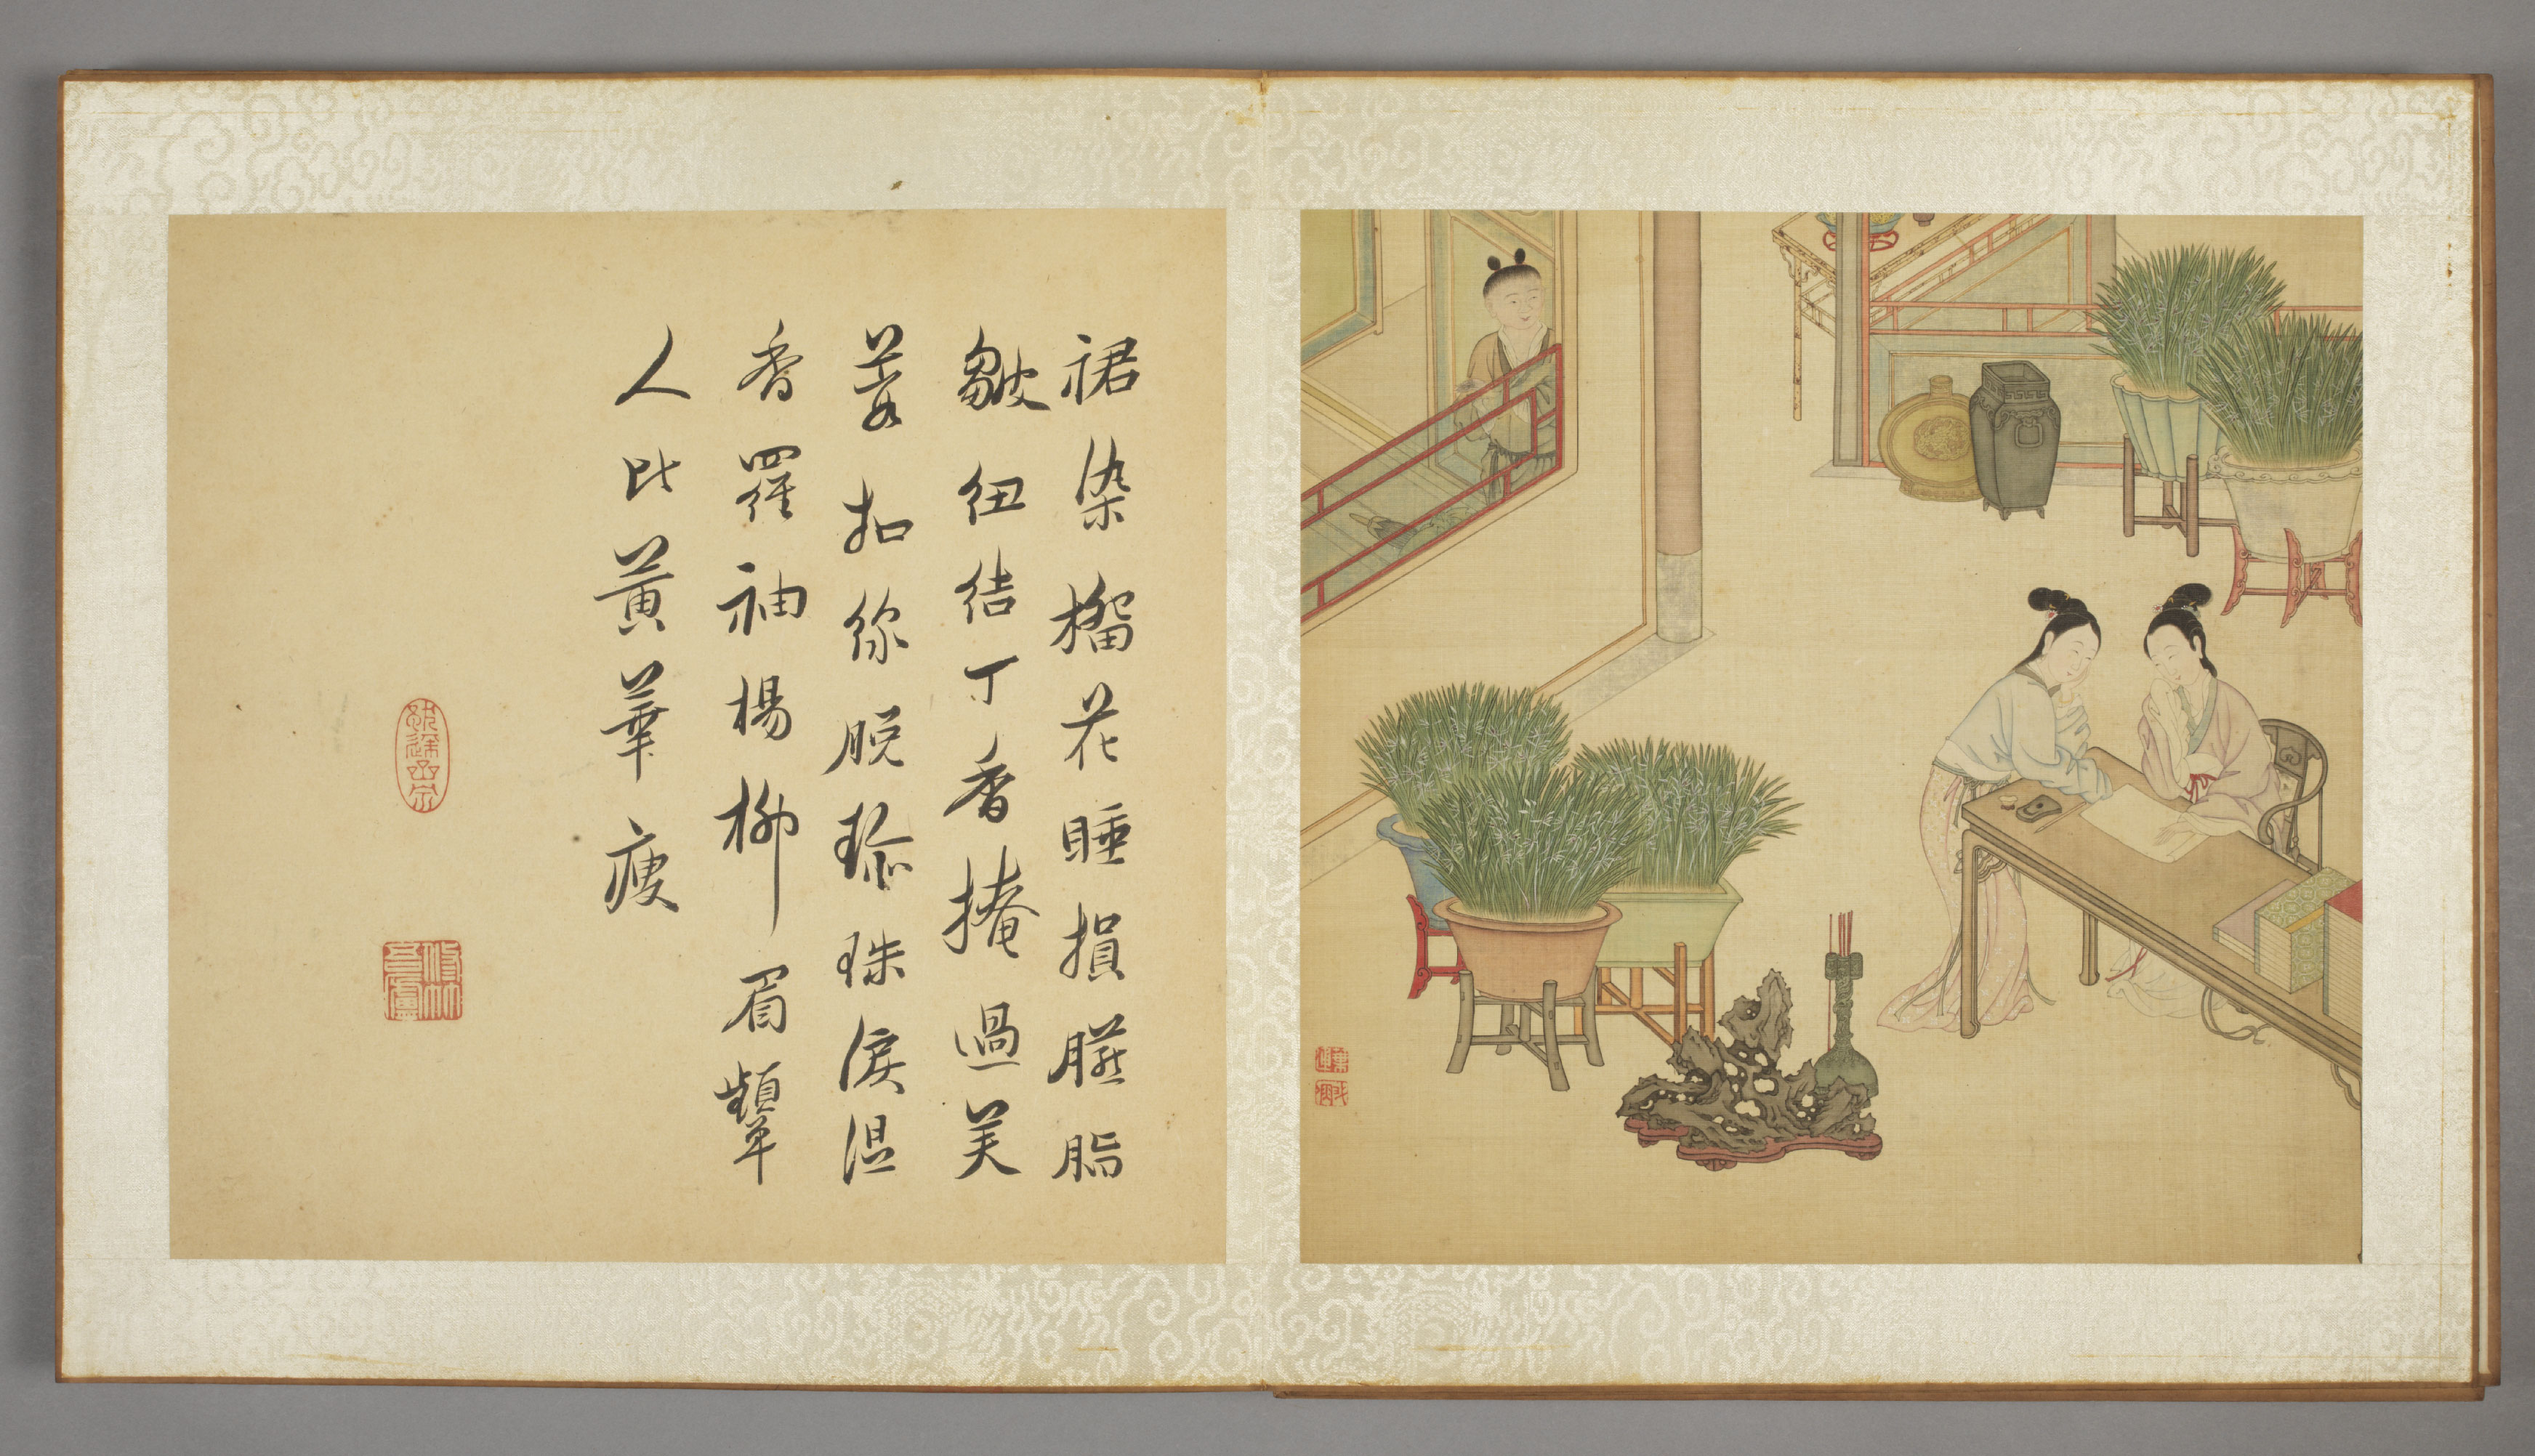 裙染榴花睡損臙脂
皺紐結丁香掩過芙
蓉扣線脫珍珠淚濕
香羅袖楊柳眉顰
人比黃華瘦